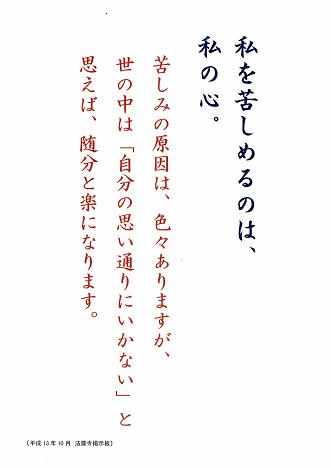 私を苦しめるのは、
私の心。
苦しみの原因は、色々ありますが、
世の中は「自分の思い通りにいかない」と
思えば、随分と楽になります。
〔平成13年10月 法龍寺掲示板〕